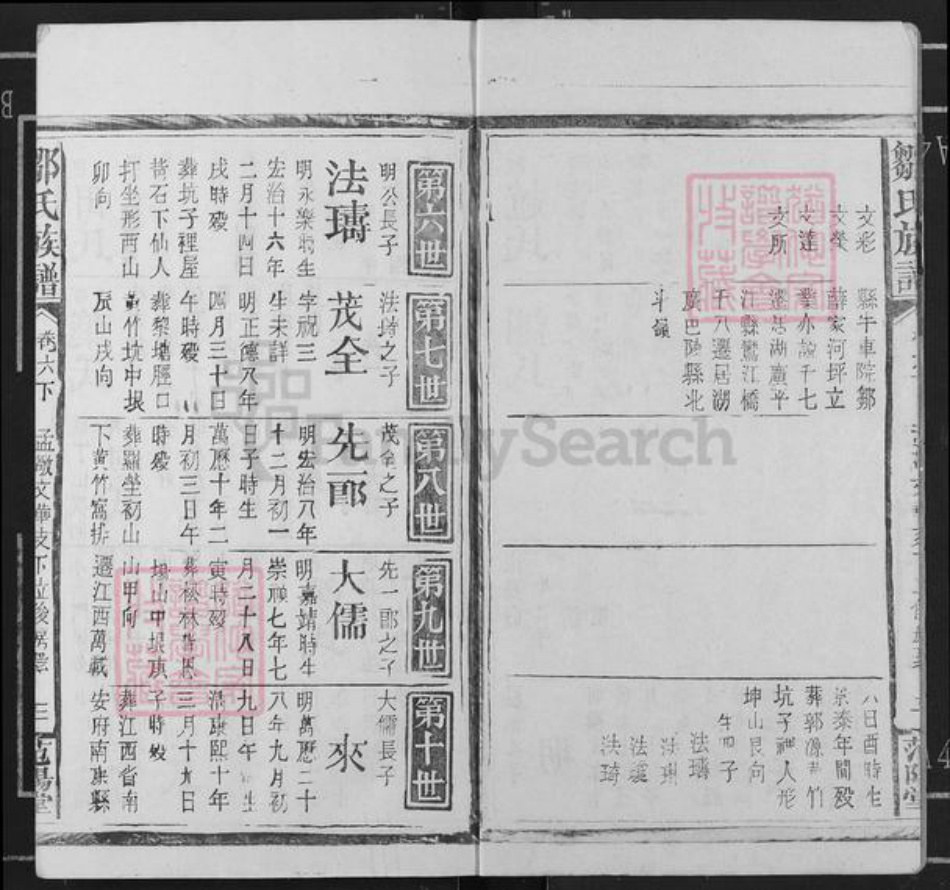 鄒氏族譜
文彩
文燦
文達
文所
縣牛車院鄒
薛家河坪立
江縣鸞江橋
千八遷居湖
廣巴陵縣北
斗嶺
八日酉時生
景泰年間殁
坑子裡人形
坤山艮向
生四子
法璹
法琦
范陽堂
第六世
明公長子
法璹
明永樂時生
宏治十六年
二月十四日
戌時殁
葬坑子裡屋
背石下仙人
打坐形丙山
卯向
第七世
法璹之子
茂全
字祝三
生未詳
明正德八年
四月三十日
午時殁
葬黎塘脛口
黃竹坑中垠
辰山戌向
第八世
茂全之子
先一郎
明宏治八年
十二月初一
日子時生
萬歷十年二
月初三日午
時殁
葬羅坐初山
下黃竹窩排
第九世
先一郎之子
大儒
明嘉靖時生
崇禎七年七
月二十八日
寅時殁
山甲向
遷江西萬載
第十世
大儒長子
來
明萬歷二十
八年九月初
九日午時生
清康熙十年
三月十九日
子時殁
葬江西省南
安府南康縣
鄒氏族譜
卷六下
三
范陽堂
FamilySearch